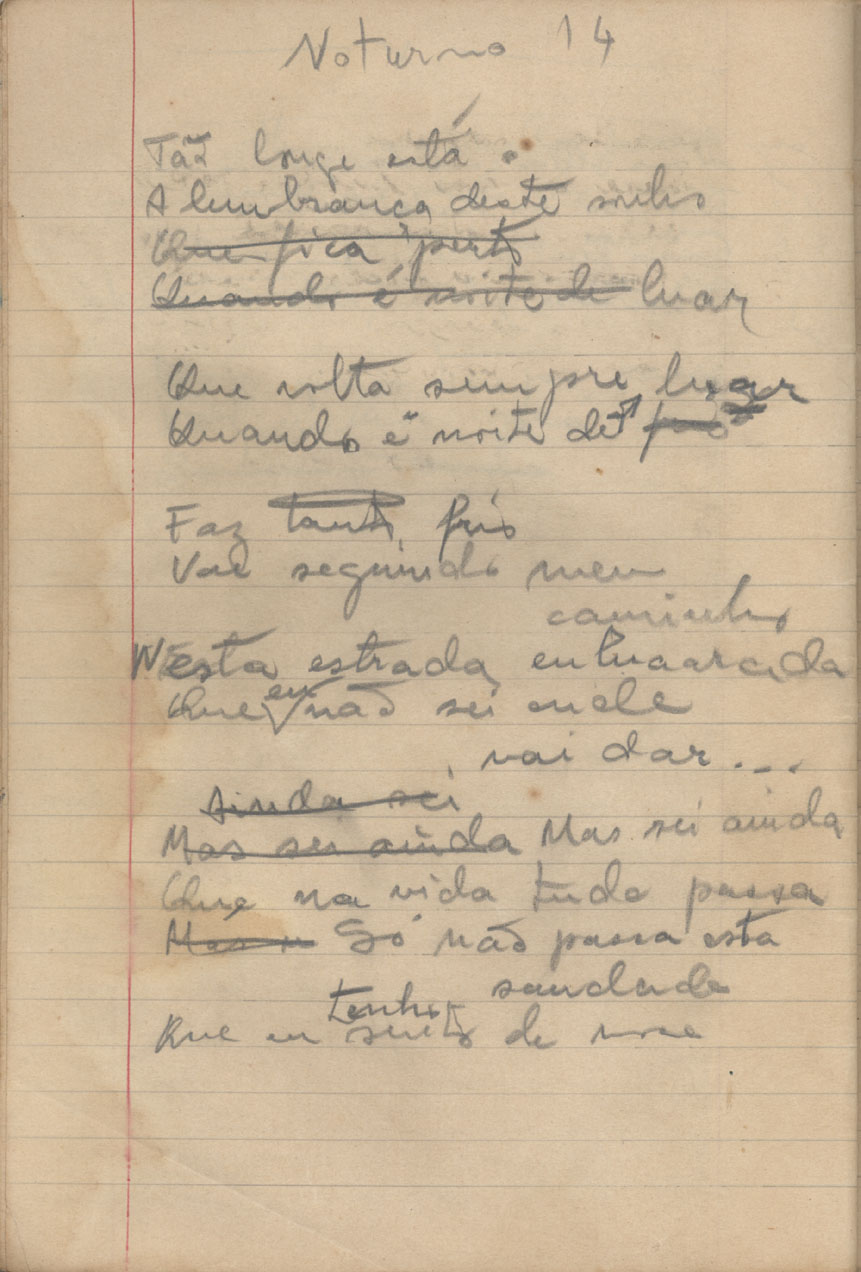 Noturno 14
Tão longe está
A lembrança deste sonho
Que fica perto
Quando é noite de luar
Que volta sempre lugar
Quando é noite de frio
Faz tanto frio
Vae seguindo meu
caminho
Nesta estrada enluarada
Que eu não sei onde
vai dar...
Ainda sei
Mas sei ainda Mas sei ainda
Que na vida tudo passa
Mas n Só não passa esta
saudade
tenho
Que eu sinto de voce